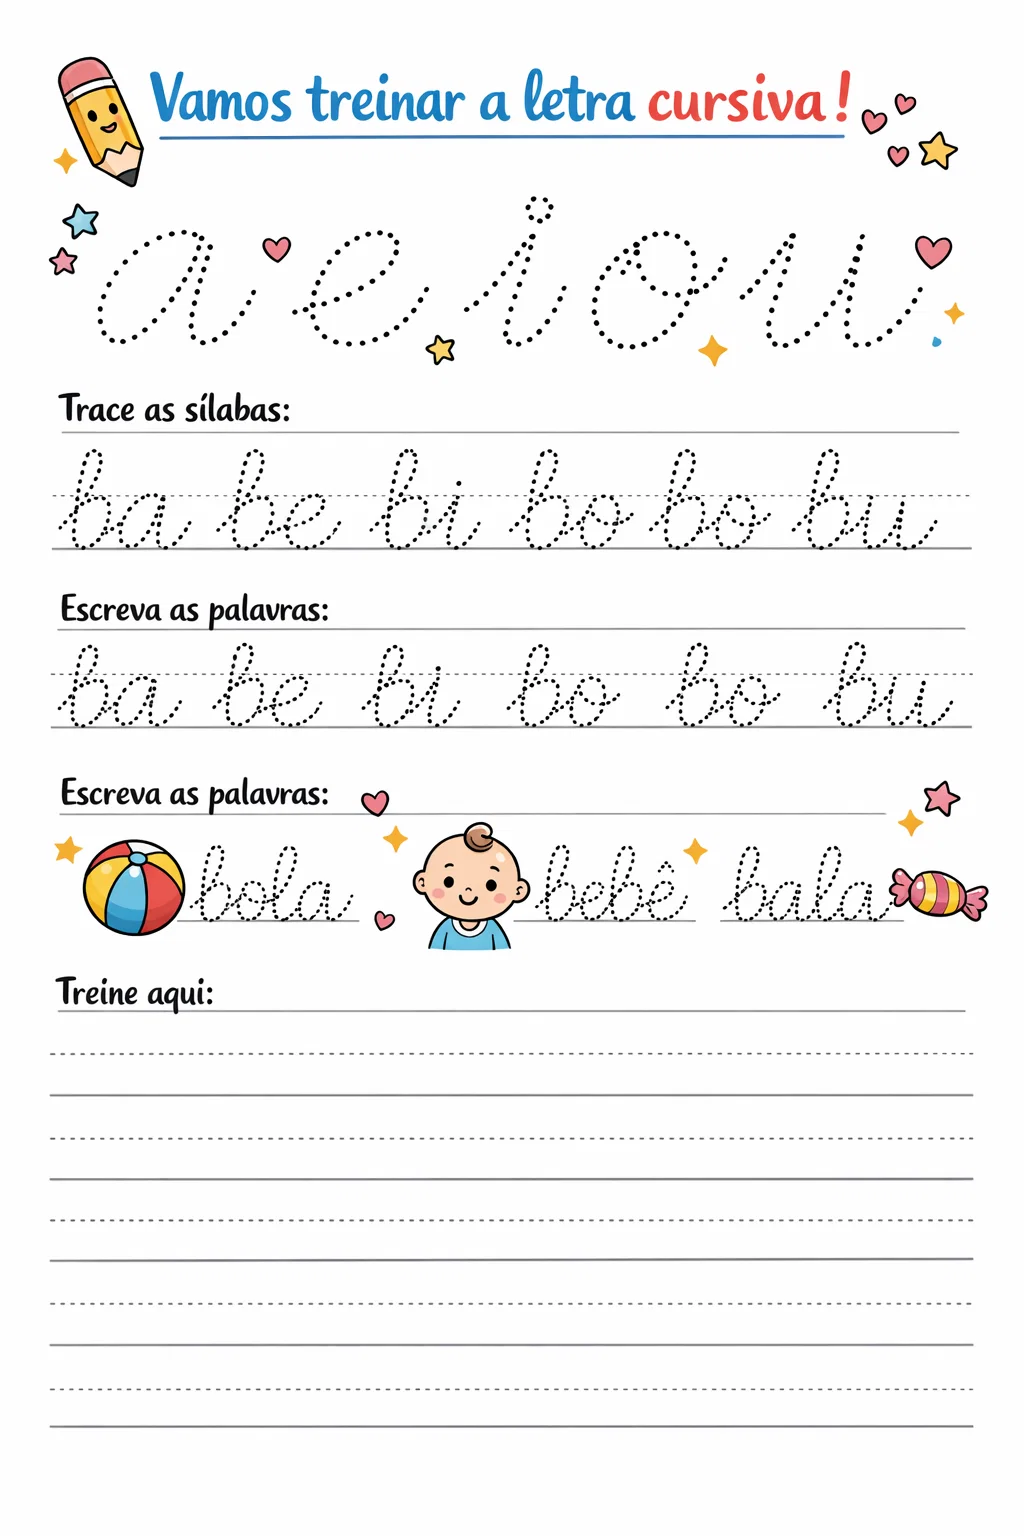 Vamos treinar a letra cursiva!
a e i o u
Trace as sílabas:
ba be bi bo bo bu
Escreva as palavras:
ba be bi bo bo bu
Escreva as palavras:
bola bebê bala
Treine aqui: